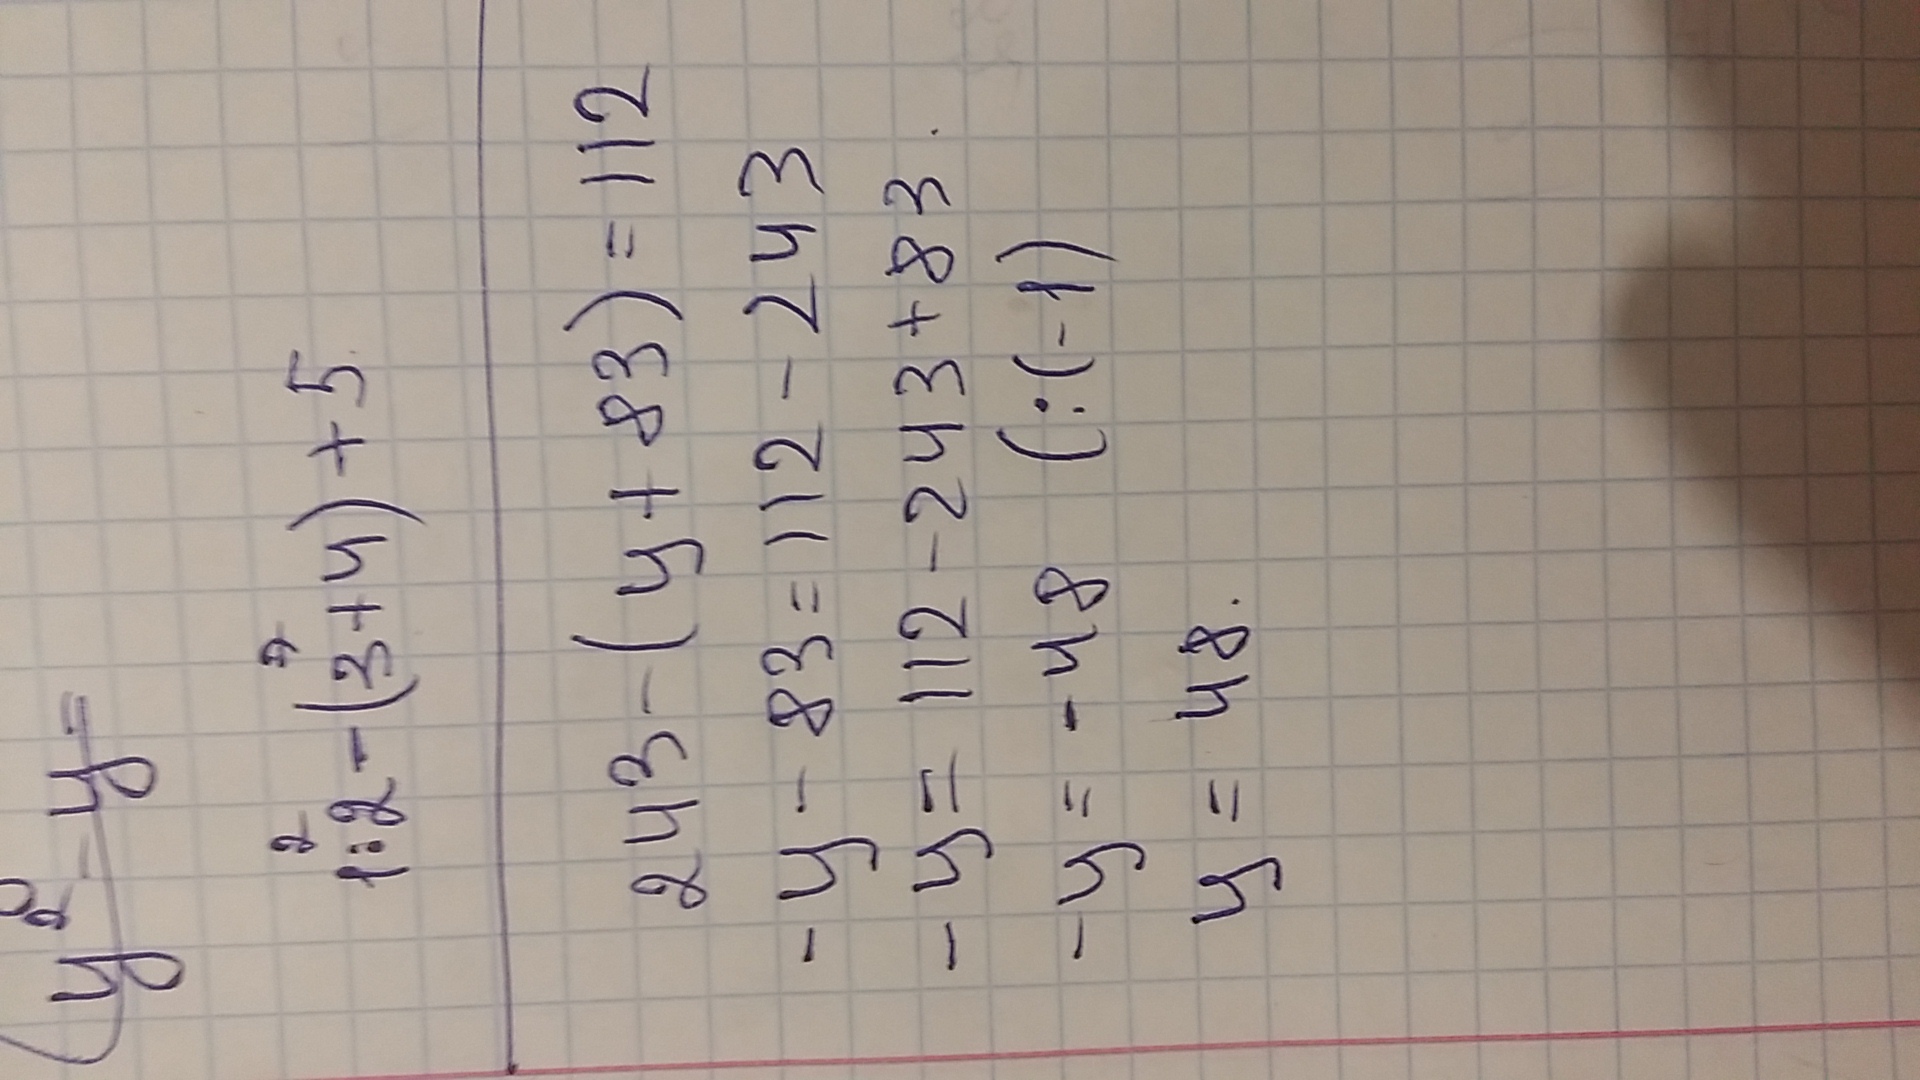 y² - y =
1:2-(3+4)+5
2 2
243-(y+83)=112
-y-83=112-243
-y=112-243+83.
-y=-48 (:(-1)
y=48.